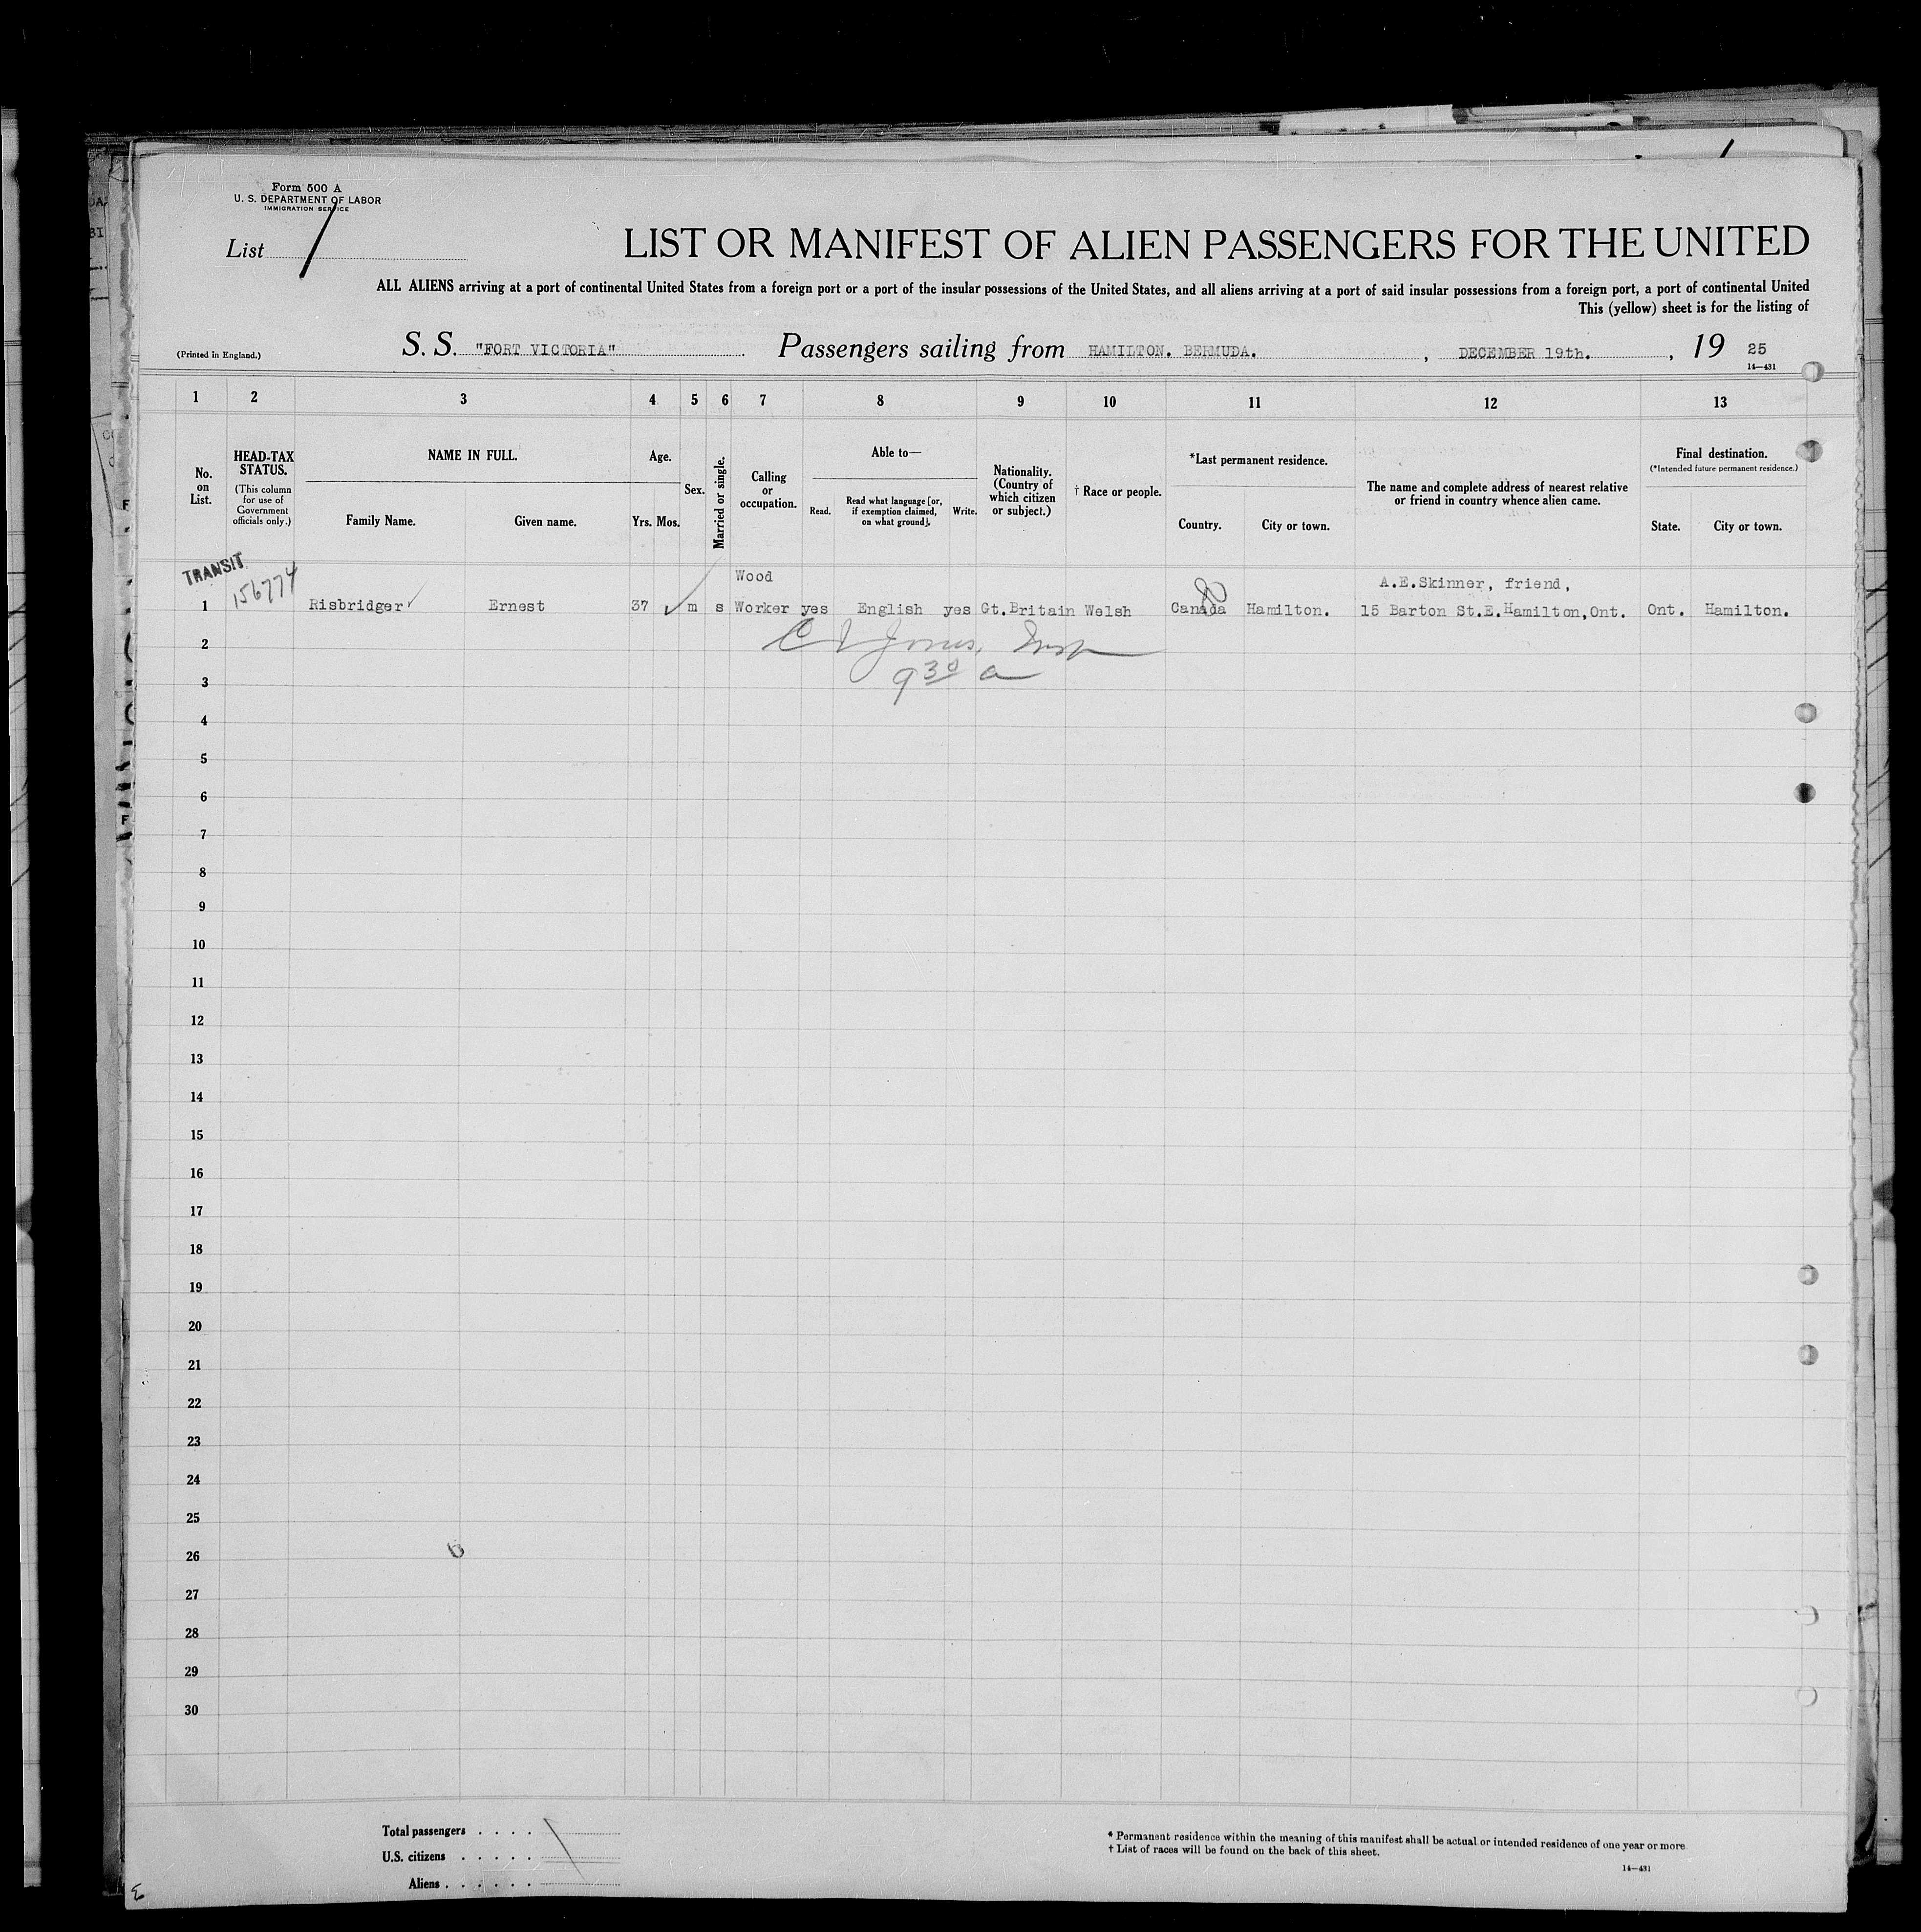 Form 500 A
U. S. DEPARTMENT OF LABOR
IMMIGRATION SERVICE
List 1
LIST OR MANIFEST OF ALIEN PASSENGERS FOR THE UNITED
ALL ALIENS arriving at a port of continental United States from a foreign port or a port of the insular possessions of the United States, and all aliens arriving at a port of said insular possessions from a foreign port, a port of continental United
This (yellow) sheet is for the listing of
(Printed in England.) S. S. "FORT VICTORIA" Passengers sailing from HAMILTON. BERMUDA. , DECEMBER 19th. , 19 25
14—431
1 2 3 4 5 6 7 8 9 10 11 12 13
No. on List.
HEAD-TAX STATUS.
(This column for use of Government officials only.)
NAME IN FULL.
Family Name. Given name.
Age.
Yrs. Mos.
Sex.
Married or single.
Calling or occupation.
Able to—
Read. Read what language [or, if exemption claimed, on what ground]. Write.
Nationality. (Country of which citizen or subject.)
† Race or people.
*Last permanent residence.
Country. City or town.
The name and complete address of nearest relative or friend in country whence alien came.
Final destination.
(*Intended future permanent residence.)
State. City or town.
TRANSIT
156774
Wood A.E.Skinner, friend,
1 Risbridger Ernest 37 m s Worker yes English yes Gt.Britain Welsh Canada Hamilton. 15 Barton St.E.Hamilton,Ont. Ont. Hamilton.
2 Jones, Insp
3 9 30 a
4
5
6
7
8
9
10
11
12
13
14
15
16
17
18
19
20
21
22
23
24
25
26
27
28
29
30
Total passengers . . . .
U.S. citizens . . . . .
Aliens . . . . . .
* Permanent residence within the meaning of this manifest shall be actual or intended residence of one year or more
† List of races will be found on the back of this sheet.
14—431